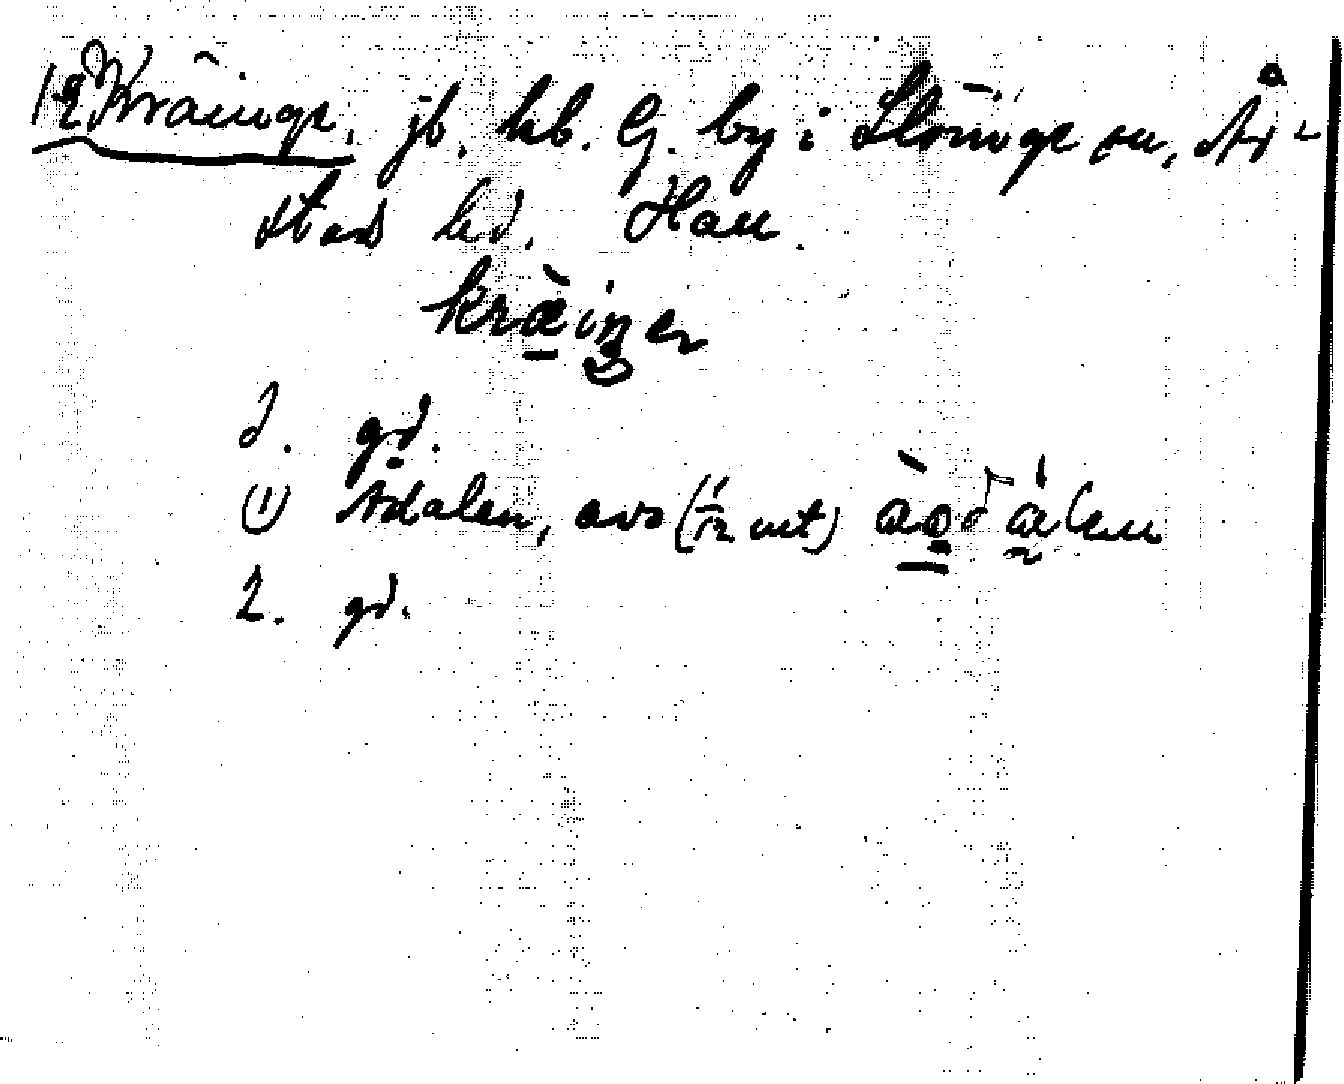 1-2 Kräinge, jb. kb. G. by i Slöinge sn, År-
stads hd. Hall.
kräiŋer
1. gd.
(1) Ådalen, avs (1/12 mt) àodálen
2. gd.